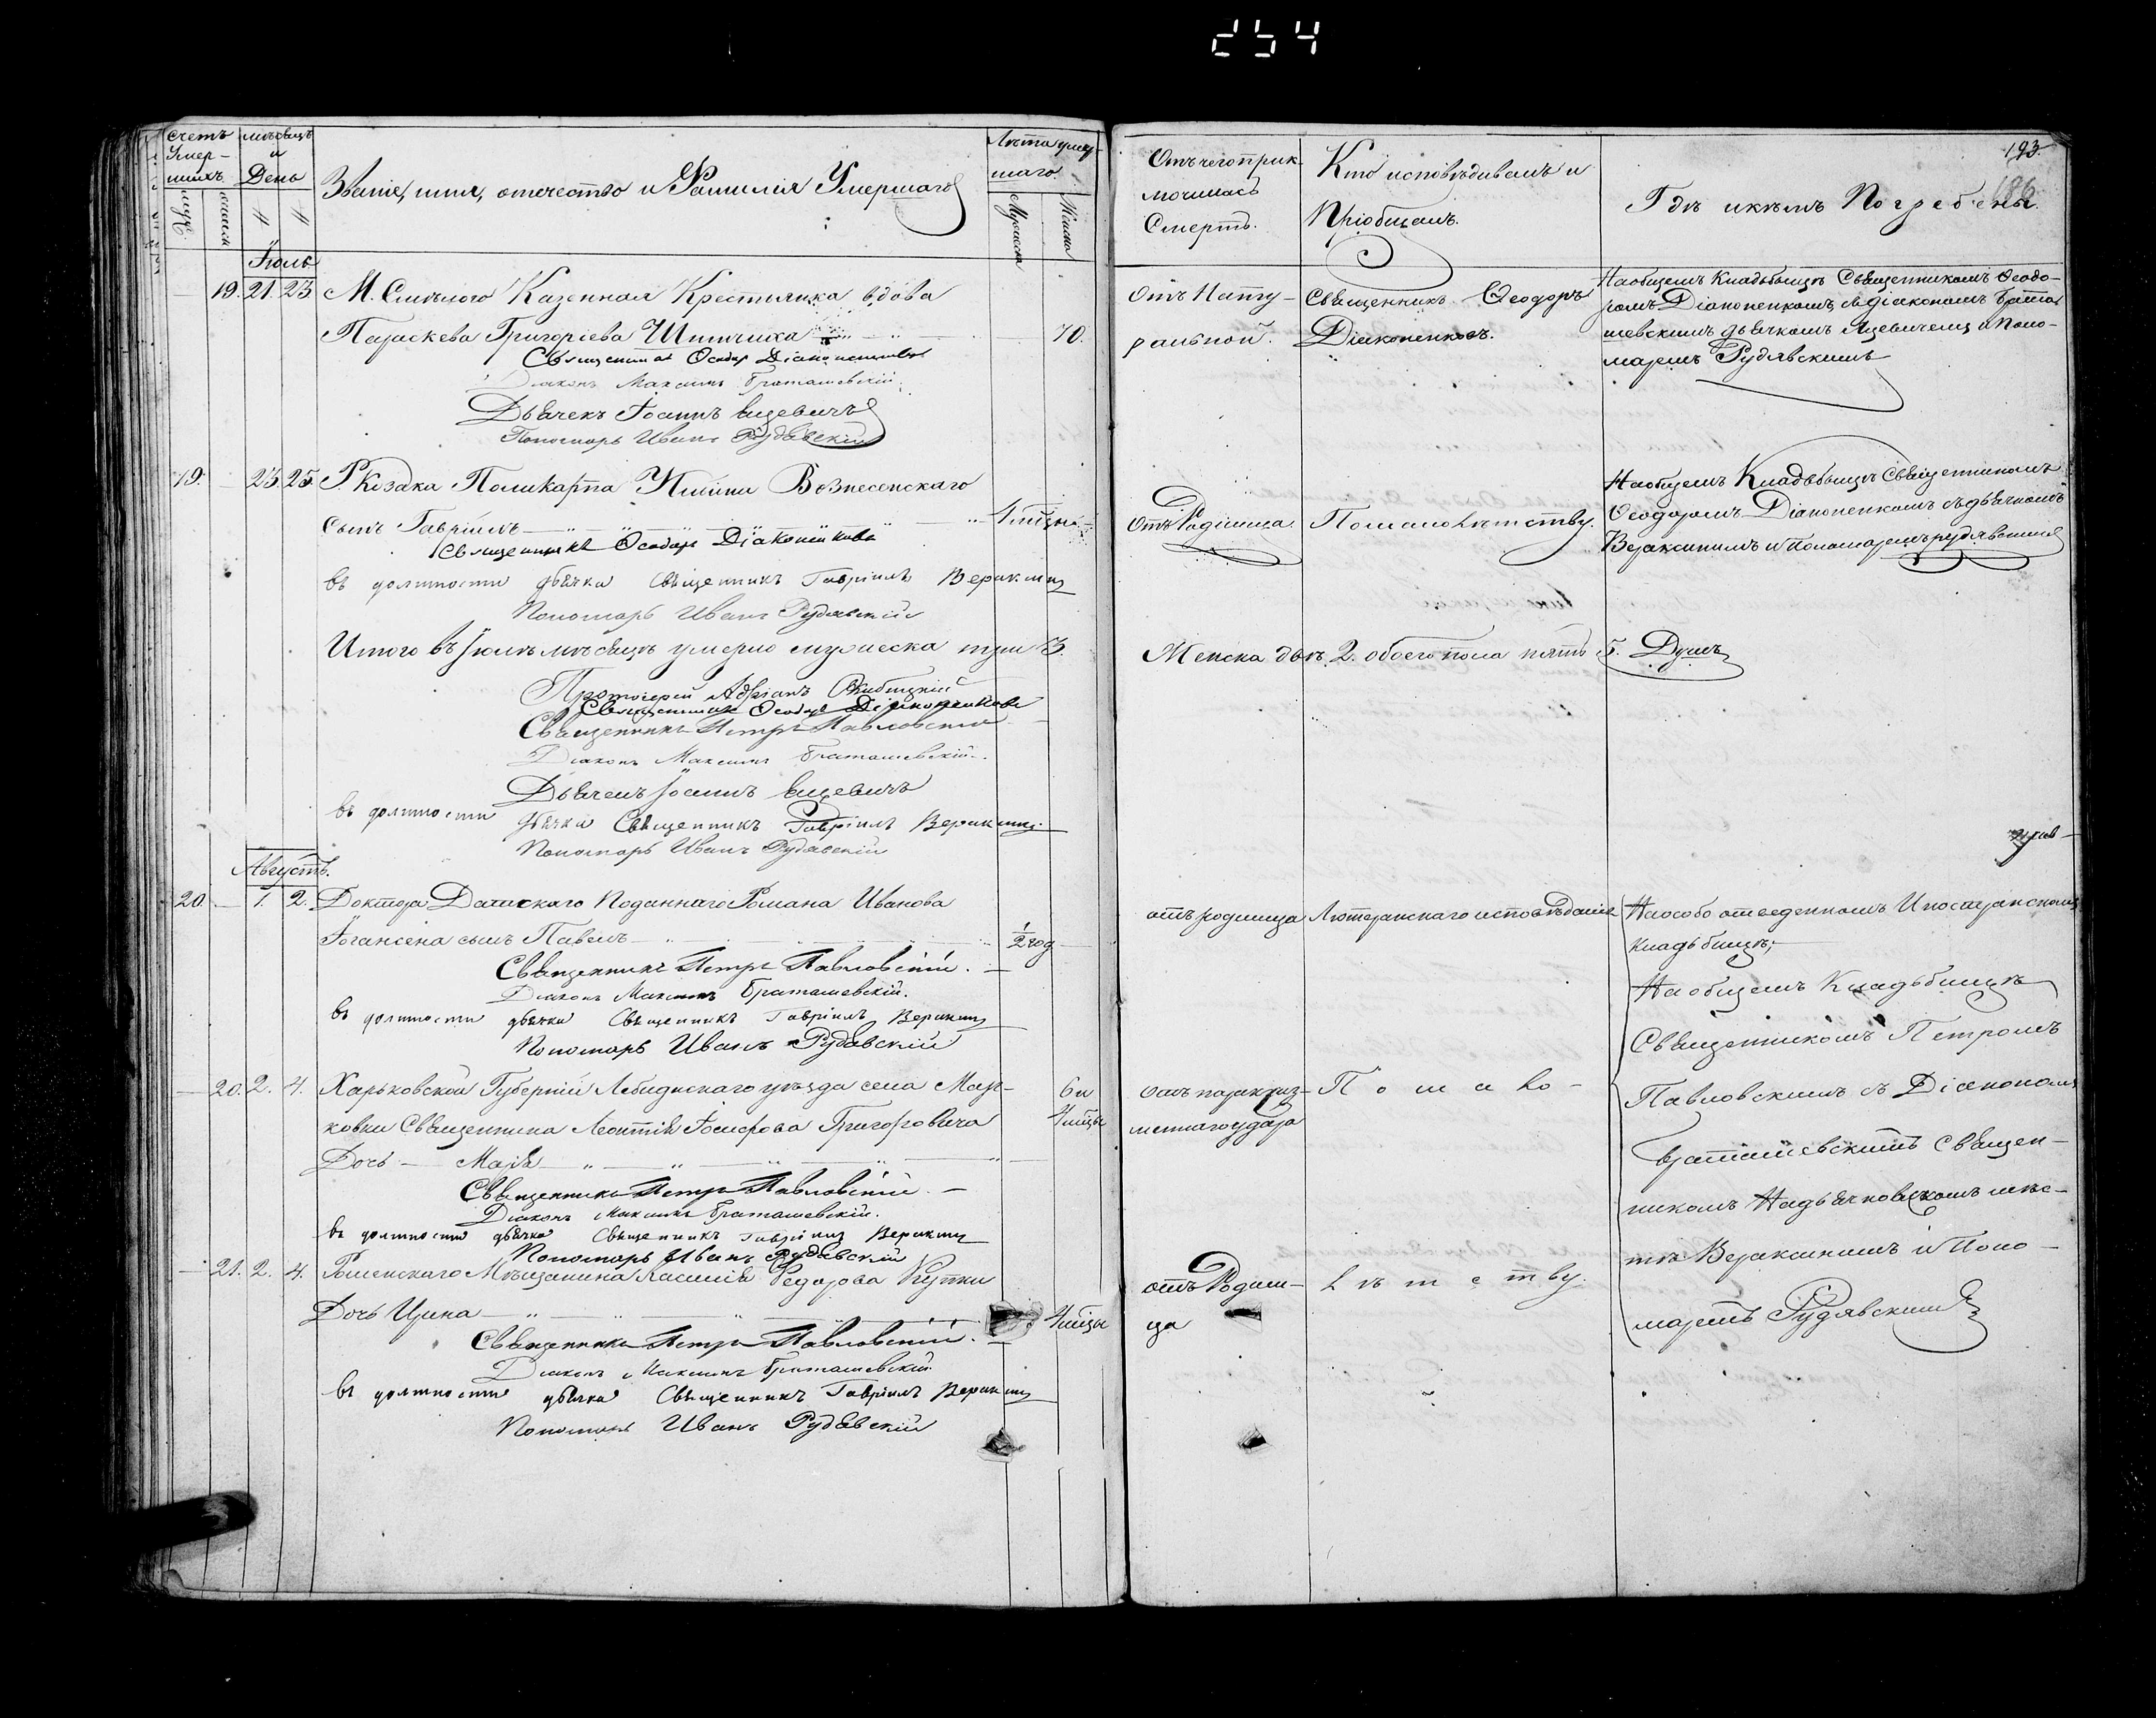 254
счетъ
Умер-
шихъ
мѣсяцъ
и
День
Званіе, имя, отечество и Фамилія Умершаго
Лѣта умер-
шаго.
Мужеска
Женска
Отъ чего прик-
лючилась
Смерть.
Кто исповѣдывалъ и
Пріобщалъ.
Гдѣ и кѣмъ Погребены.
193.
186
Іюль
19. 21. 23 М. Смѣлого Казенная Крестьянка вдова
Параскева Григоріева
70.
Священникъ Ѳеодоръ Діаконенковъ
Діаконъ Максимъ Браташевскій
Дьячекъ Іоаннъ Яцевичъ
Пономарь Иванъ Рудявскій
Отъ Нату-
ральной.
Священникъ Ѳеодоръ
Діаконенковъ.
На общемъ Кладьбищѣ Священникомъ Ѳеодо-
ромъ Діаконенкомъ, съ діакономъ Брата-
шевскимъ дьячкомъ Яцевичемъ и Поно-
маремъ Рудявскимъ
19. 23. 25. Р. Козака Поликарпа Ильина Вознесенскаго
сынъ Гавріилъ
4 мѣсцы
Священникъ Ѳеодоръ Діаконенковъ
въ должности дьячка Священникъ Гавріилъ
Пономарь Иванъ Рудявскій
Отъ Родимца
По малолѣтству.
На общемъ Кладьбищѣ Священникомъ
Ѳеодоромъ Діаконенкомъ съ дьячкомъ
и пономаремъ Рудявскимъ
Итого въ Іюлѣ мѣсяцѣ умерло мужеска три 3.
Женска двѣ 2. обоего пола пять 5. Душъ
Протоіерей Адріанъ
Священникъ Ѳеодоръ Діаконенковъ
Священникъ Петръ Павловскій
Діаконъ Максимъ Браташевскій.
Дьячекъ Іоаннъ Яцевичъ
въ должности дьячка Священникъ Гавріилъ
Пономарь Иванъ Рудявскій
Августъ.
20. 1. 2. Доктора Датскаго Поданнаго Романа Иванова
Іогансена сынъ Павелъ
1/2 год
Священникъ Петръ Павловскій.
Діаконъ Максимъ Браташевскій.
въ должности дьячка Священникъ Гавріилъ
Пономарь Иванъ Рудявскій
отъ родимца
Лютеранскаго исповѣданія
На особо отведенномъ Иностранскомъ
кладьбищѣ;
20. 2. 4. Харьковской Губерніи Лебединскаго уѣзда села Мар-
ковки Священника Леонтія Іосифова Григоровича
Дочь Марія
6 и
4 мѣсцы
Священникъ Петръ Павловскій.
Діаконъ Максимъ Браташевскій.
въ должности дьячка Священникъ Гавріилъ
Пономарь Иванъ Рудявскій
отъ
удара
По мало-
На общемъ Кладьбищѣ
Священникомъ Петромъ
Павловскимъ съ Діакономъ
Браташевскимъ Священ-
никомъ На дьячковскомъ мѣс-
тѣ и Поно-
маремъ Рудявскимъ
21. 2. 4. Роменскаго Мѣщанина Касіяна Федорова
Дочь Ирина
4 мѣсцы
Священникъ Петръ Павловскій.
Діаконъ Максимъ Браташевскій
въ должности дьячка Священникъ Гавріилъ
Пономарь Иванъ Рудявскій
отъ Родим-
ца
лѣтству.